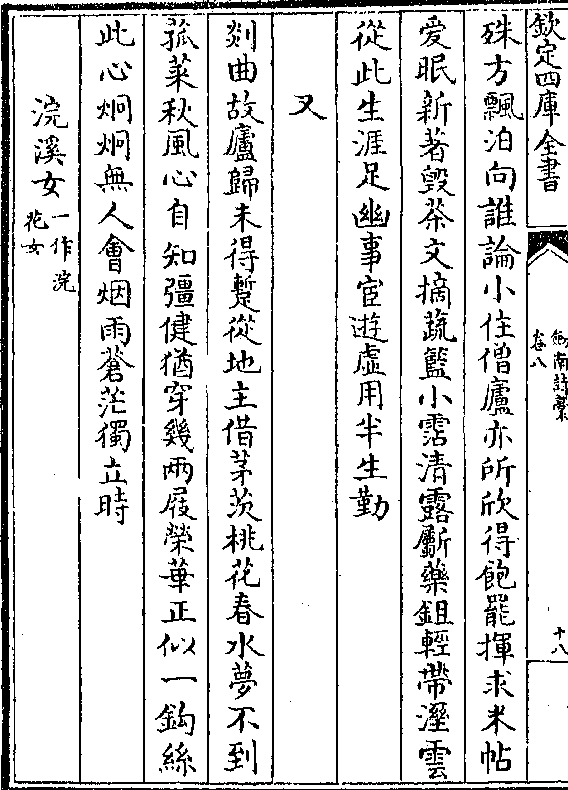 欽定四庫全書
劔南詩藁
卷八
十八
殊方飄泊向誰論小住僧廬亦所欣得飽罷揮求米帖
愛眠新著毀茶文摘蔬籃小霑清露斸藥鉏輕帶溼雲
從此生涯足幽事宦遊虛用半生勤
又
剡曲故廬歸未得蹔從地主借茅茨桃花春水夢不到
菰菜秋風心自知彊健猶穿幾兩屐榮華正似一鈎絲
此心炯炯無人會烟雨蒼茫獨立時
浣溪女一作浣
花女